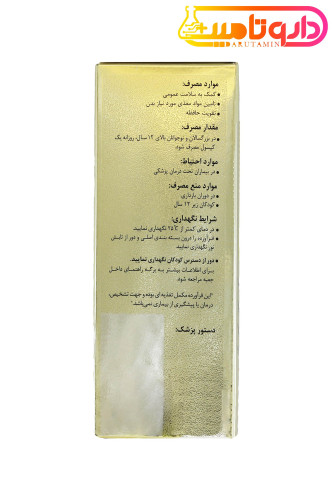 داروتامین
DARUTAMIN
موارد مصرف:
• کمک به سلامت عمومی
• تامین مواد مغذی مورد نیاز بدن
• تقویت حافظه
مقدار مصرف:
• در بزرگسالان و نوجوانان بالای ۱۲ سال، روزانه یک
کپسول مصرف شود.
موارد احتیاط:
• در بیماران تحت درمان پزشکی
موارد منع مصرف:
• در دوران بارداری
• کودکان زیر ۱۲ سال
شرایط نگهداری:
• در دمای کمتر از ۲۵°C نگهداری نمایید.
• فرآورده را درون بسته بندی اصلی و دور از تابش
نور نگهداری نمایید.
• دور از دسترس کودکان نگهداری نمایید.
برای اطلاعات بیشتر به برگه راهنمای داخل
جعبه مراجعه شود.
"این فرآورده مکمل تغذیه‌ای بوده و جهت تشخیص،
درمان یا پیشگیری از بیماری نمی‌باشد."
دستور پزشک: